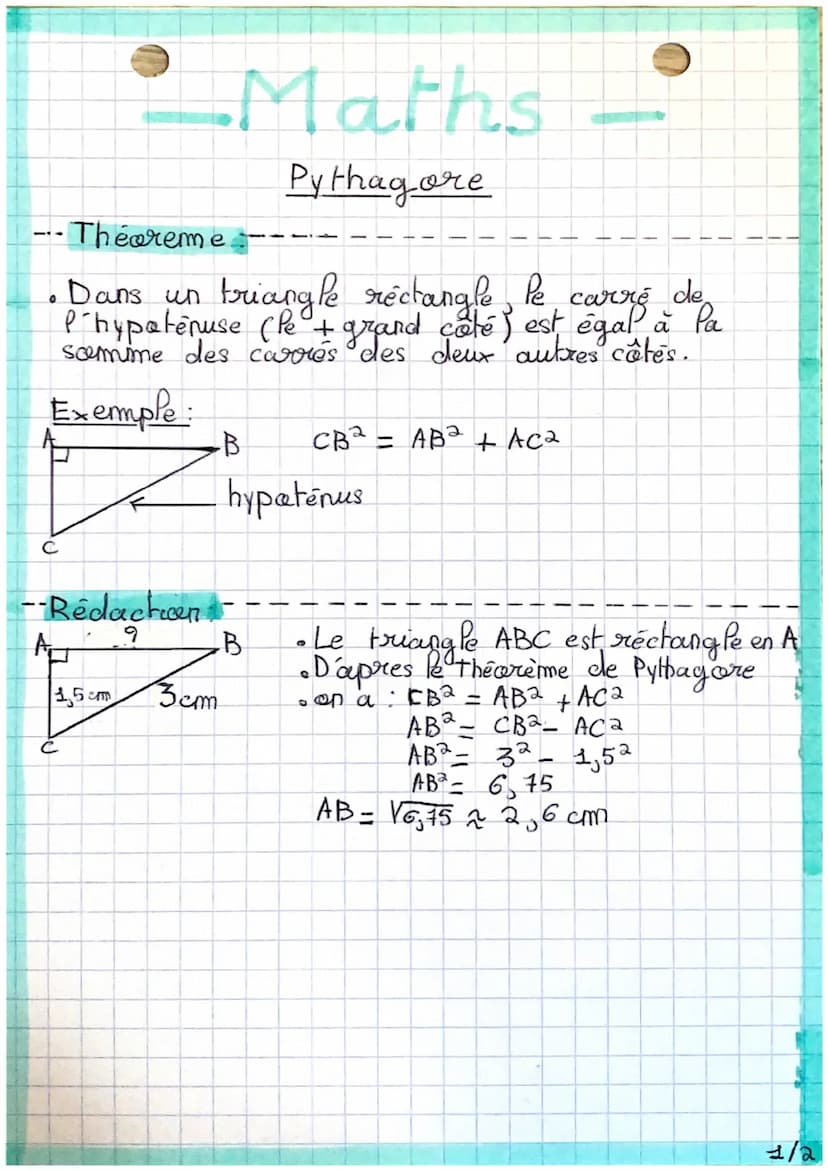 Maths
Pythagore
Théoreme :
• Dans un triangle réctangle, le carré de
l'hypoténuse (le + grand côté) est égal à la
somme des carrés des deux autres côtés.
Exemple :
A
B
CB² = AB² + AC²
hypoténus
C
Rédaction :
A
?
B
• Le triangle ABC est réctangle en A
• D'apres le théorème de Pythagore
1,5 cm
3cm
• on a : CB² = AB² + AC²
C
AB² = CB² - AC²
AB² = 3² - 1,5²
AB² = 6,75
AB = √6,75 ≈ 2,6 cm
1/2